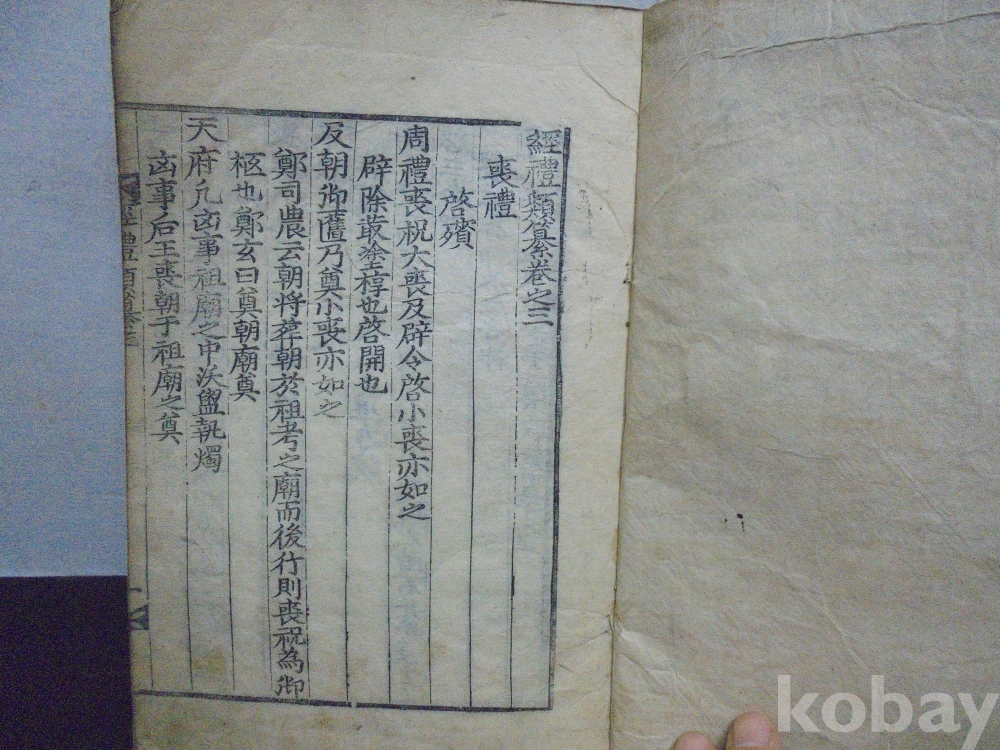 經禮類纂卷之三
喪禮
啓殯
周禮喪祝大喪及辟令啓小喪亦如之
辟除菆塗椁也啓開也
及朝御匶乃奠小喪亦如之
鄭司農云朝將葬朝於祖考之廟而後行則喪祝為御
柩也鄭玄曰奠朝廟奠
天府凡凶事祖廟之中沃盥執燭
凶事后王喪朝于祖廟之奠
經禮類纂三
kobay